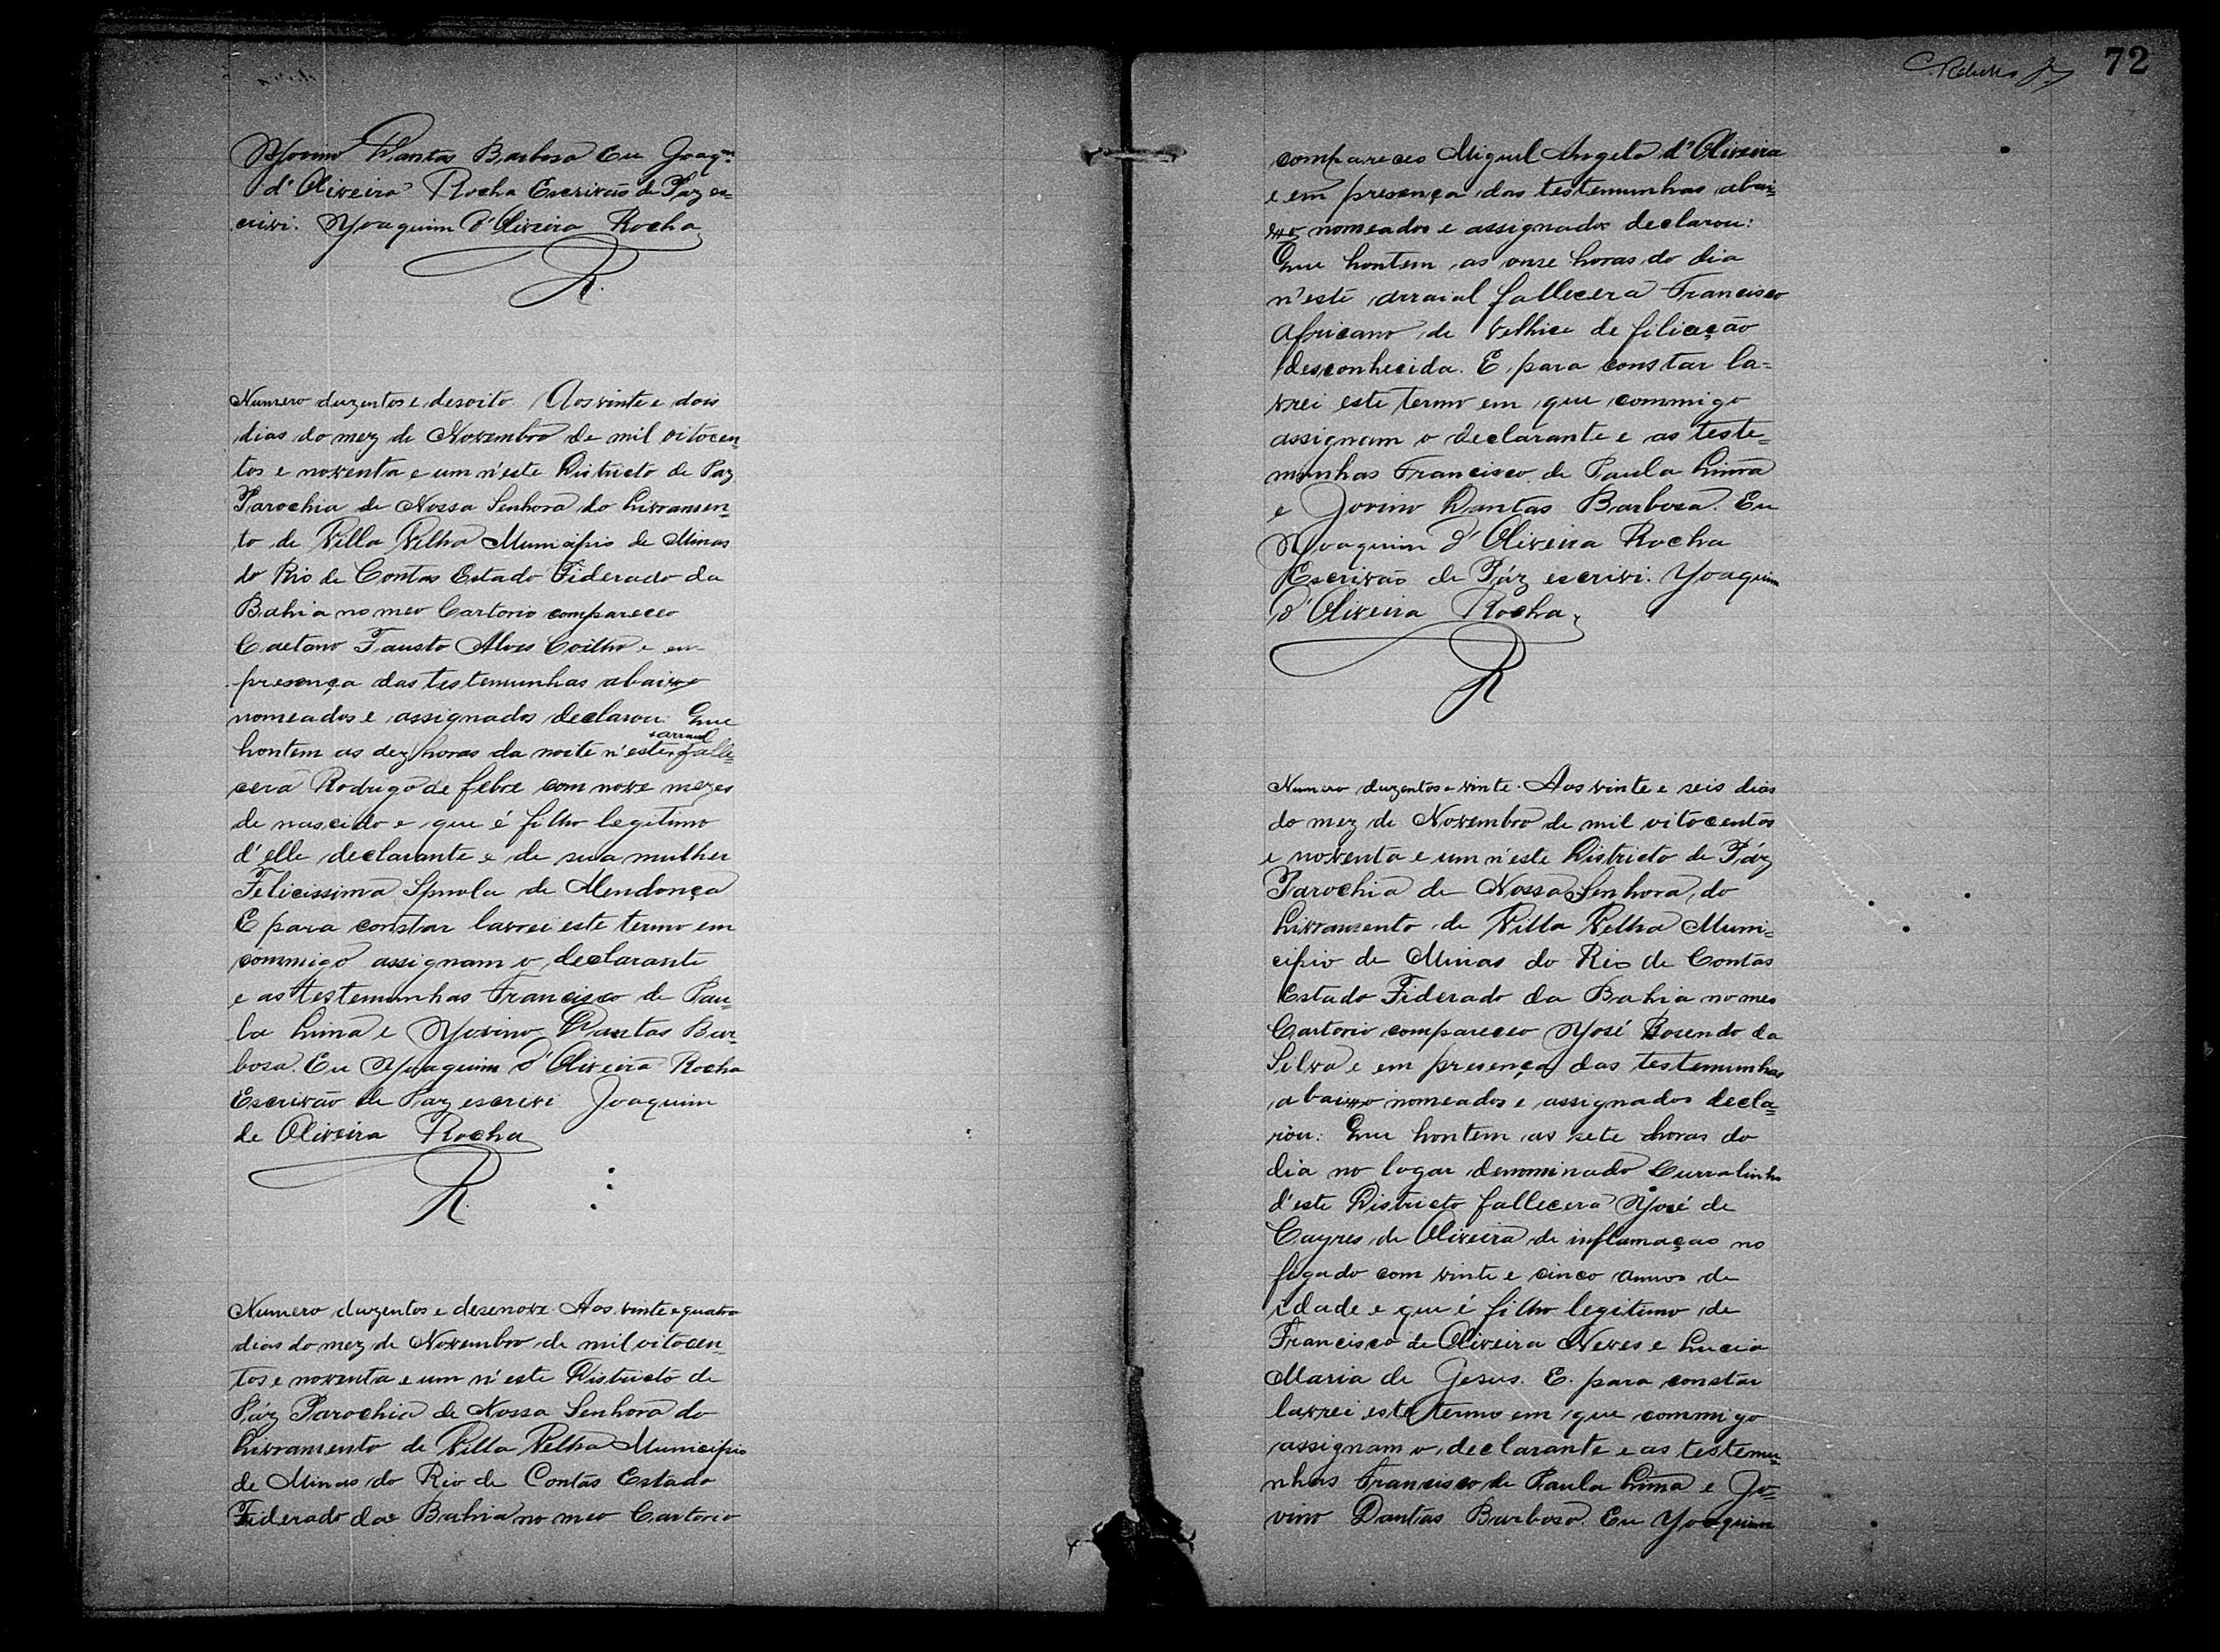 Jovino Dantas Barbosa Eu Joaqm
d'Oliveira Rocha Escrivão de Paz es=
crivi. Joaquim d'Oliveira Rocha
R.
Numero duzentos e desoito. Aos vinte e dois
dias do mez de Novembro de mil oitocen=
tos e noventa e um n'este Districto de Paz
Parochia de Nossa Senhora do Livramen=
to de Villa Velha Municipio de Minas
do Rio de Contas Estado Fiderado da
Bahia no meo Cartorio compareceo
Caetano Fausto Alves Coelho e em
presença das testemunhas abaixo
nomeados e assignados declarou: Que
hontem as dez horas da noite n'este arraial falle=
cera Rodrigo de febre com nove mezes
de nascido e que é filho legitimo
d'elle declarante e de sua mulher
Felicissima Spinola de Mendonça
E para constar lavrei este termo em
commigo assignam o declarante
e as testemunhas Francisco de Pau=
la Lima e Jovino Dantas Bar=
bosa. Eu Joaquim d'Oliveira Rocha
Escrivão de Paz escrivi Joaquim
de Oliveira Rocha
R.
Numero duzentos e desenove. Aos vinte e quatro
dias do mez de Novembro de mil oitocen=
tos e noventa e um n'este Districto de
Páz Parochia de Nossa Senhora do
Livramento de Villa Velha Municipio
de Minas do Rio de Contas Estado
Fiderado da Bahia no meo Cartorio
72
compareceo Miguel Angelo d'Oliveira
e em presença das testemunhas abai=
xo nomeados e assignados declarou:
Que hontem as onse horas do dia
n'este arraial fallecera Francisco
Africano de velhice de filiação
desconhecida. E para constar la=
vrei este termo em que commigo
assignam o declarante e as teste=
munhas Francisco de Paula Lima
e Jovino Dantas Barbosa. Eu
Joaquim d'Oliveira Rocha
Escrivão de Páz escrivi. Joaquim
d'Oliveira Rocha.
R
Numero duzentos e vinte. Aos vinte e seis dias
do mez de Novembro de mil oitocentos
e noventa e um n'este Districto de Páz
Parochia de Nossa Senhora do
Livramento de Villa Velha Muni=
cipio de Minas do Rio de Contas
Estado Fiderado da Bahia no meo
Cartorio compareceo José Rosendo da
Silva e em presença das testemunhas
abaixo nomeados e assignados decla=
rou: Que hontem as sete horas do
dia no logar denominado Curralinho
d'este Districto fallecera José de
Cayres de Oliveira de inflamação no
figado com vinte e cinco annos de
idade e que é filho legitimo de
Francisco de Oliveira Neves e Lucia
Maria de Jesus. E. para constar
lavrei este termo em que commigo
assignam o declarante e as testemu=
nhas Francisco de Paula Lima e Jo=
vino Dantas Barbosa. Eu Joaquim